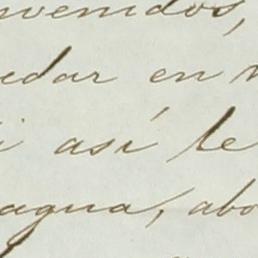 nvenidos,
edar en
i así le
agua, abo